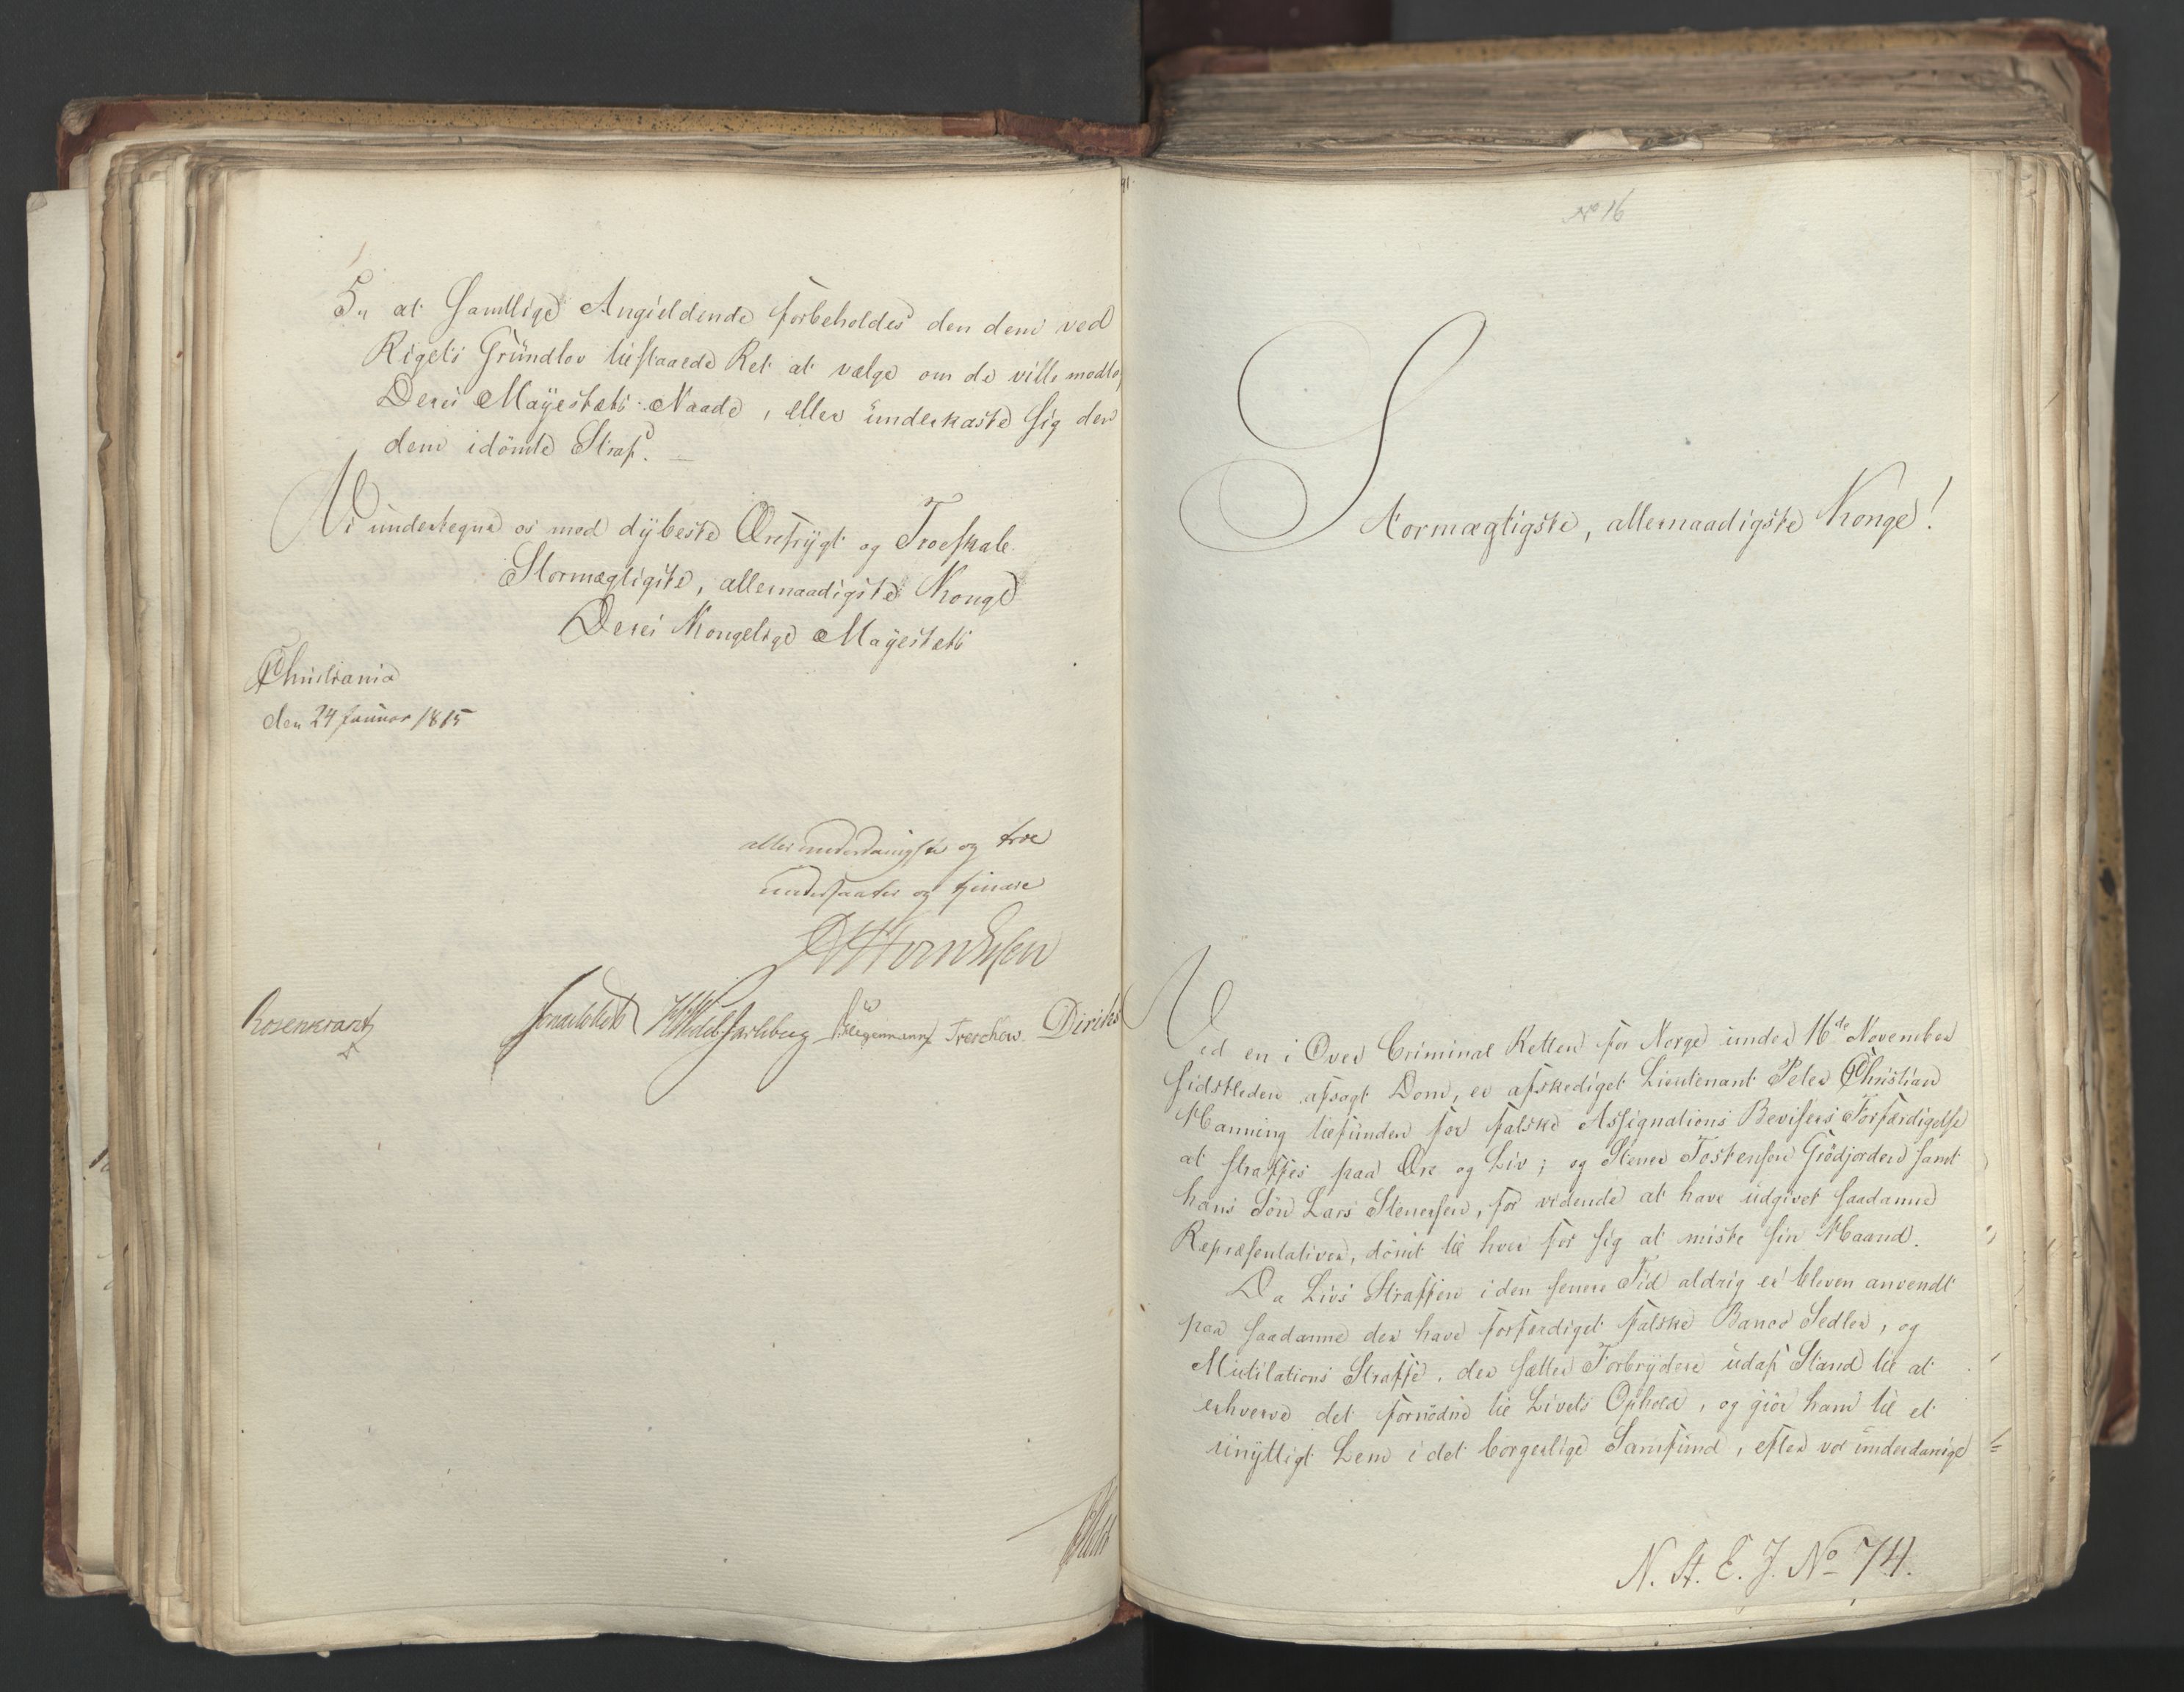 5, at samtlige Angieldende forbeholdes den dem ved
Rigets Grundlov tilstaaede Ret at vælge om de ville modta
Deres Mayestæts Naade, eller underkaste sig den
dem idömte Straf. —
Vi undertegne os med dybeste Ærefrygt og Troeskab.
Stormægtigste, allernaadigste Konge
Deres Kongelige Mayestæts
Christiania
den 24 Januar 1815
allerunderdanigste og troe
undersaatter og tjenere
Rosenkrantz
Treschow. Diriks
No 16
Stormægtigste, allernaadigste Konge!
Ved en i Over Criminal Retten for Norge under 16de November
sidstleden afsagt Dom, er afskediget Lieutenant Peter Christian
Hanning tilfunden for falske Assignations Bevisers Forfærdigelse
at straffes paa Ære og Liv; og Stener Tostensen Grödjorden samt
hans Sön Lars Stenersen, for vidende at have udgivet saadanne
Repræsentativer, dömt til hver for sig at miste sin Haand.
Da Livs Straffen i den senere Tid aldrig er bleven anvendt
paa saadanne der have forfærdiget falske Banco Sedler, og
Mutilations Straffe, der sætter Forbrydere udaf Stand til at
erhverve det fornödne til Livets Ophold, og giör ham til et
unyttigt Lem i det borgerlige Samfund, efter vor underdanige
N. A. E. J. No 74.